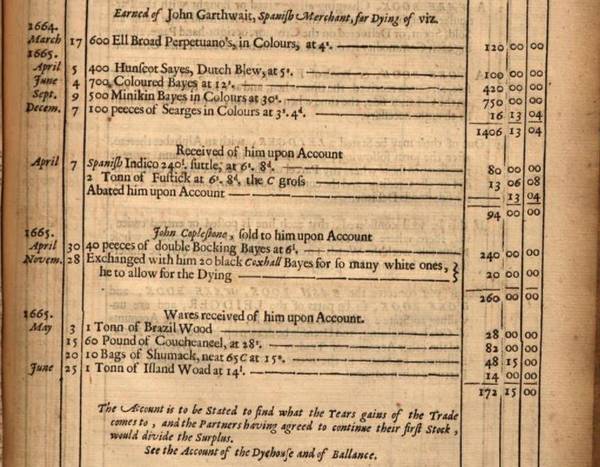 Earned of John Garthwait, Spanish Merchant, for Dying of viz.
1664.
March 17 600 Ell Broad Perpetuano's, in Colours, at 4s. 120 00 00
1665.
April 5 400 Hunscot Sayes, Dutch Blew, at 5s. 100 00 00
June 4 700 Coloured Bayes at 12s. 420 00 00
Sept. 9 500 Minikin Bayes in Colours at 30s. 750 00 00
Decem. 7 100 peeces of Searges in Colours at 3s. 4d. 16 13 04
1406 13 04
Received of him upon Account
April 7 Spanish Indico 240l. suttle, at 6s. 8d. 80 00 00
2 Tonn of Fustick at 6s. 8d. the C gross 13 06 08
Abated him upon Account 13 04
94 00 00
1665. John Coplestone, sold to him upon Account
April 30 40 peeces of double Bocking Bayes at 6l. 240 00 00
Novem. 28 Exchanged with him 20 black Coxhall Bayes for so many white ones,
he to allow for the Dying 20 00 00
260 00 00
1665. Wares received of him upon Account.
May 3 1 Tonn of Brazil Wood 28 00 00
15 60 Pound of Coucheaneel, at 28s. 82 00 00
20 10 Bags of Shumack, neat 65 C at 15s. 48 15 00
June 25 1 Tonn of Island Woad at 14l. 14 00 00
172 15 00
The Account is to be Stated to find what the Years gains of the Trade
comes to, and the Partners having agreed to continue their first Stock,
would divide the Surplus.
See the Account of the Dyehouse and of Ballance.